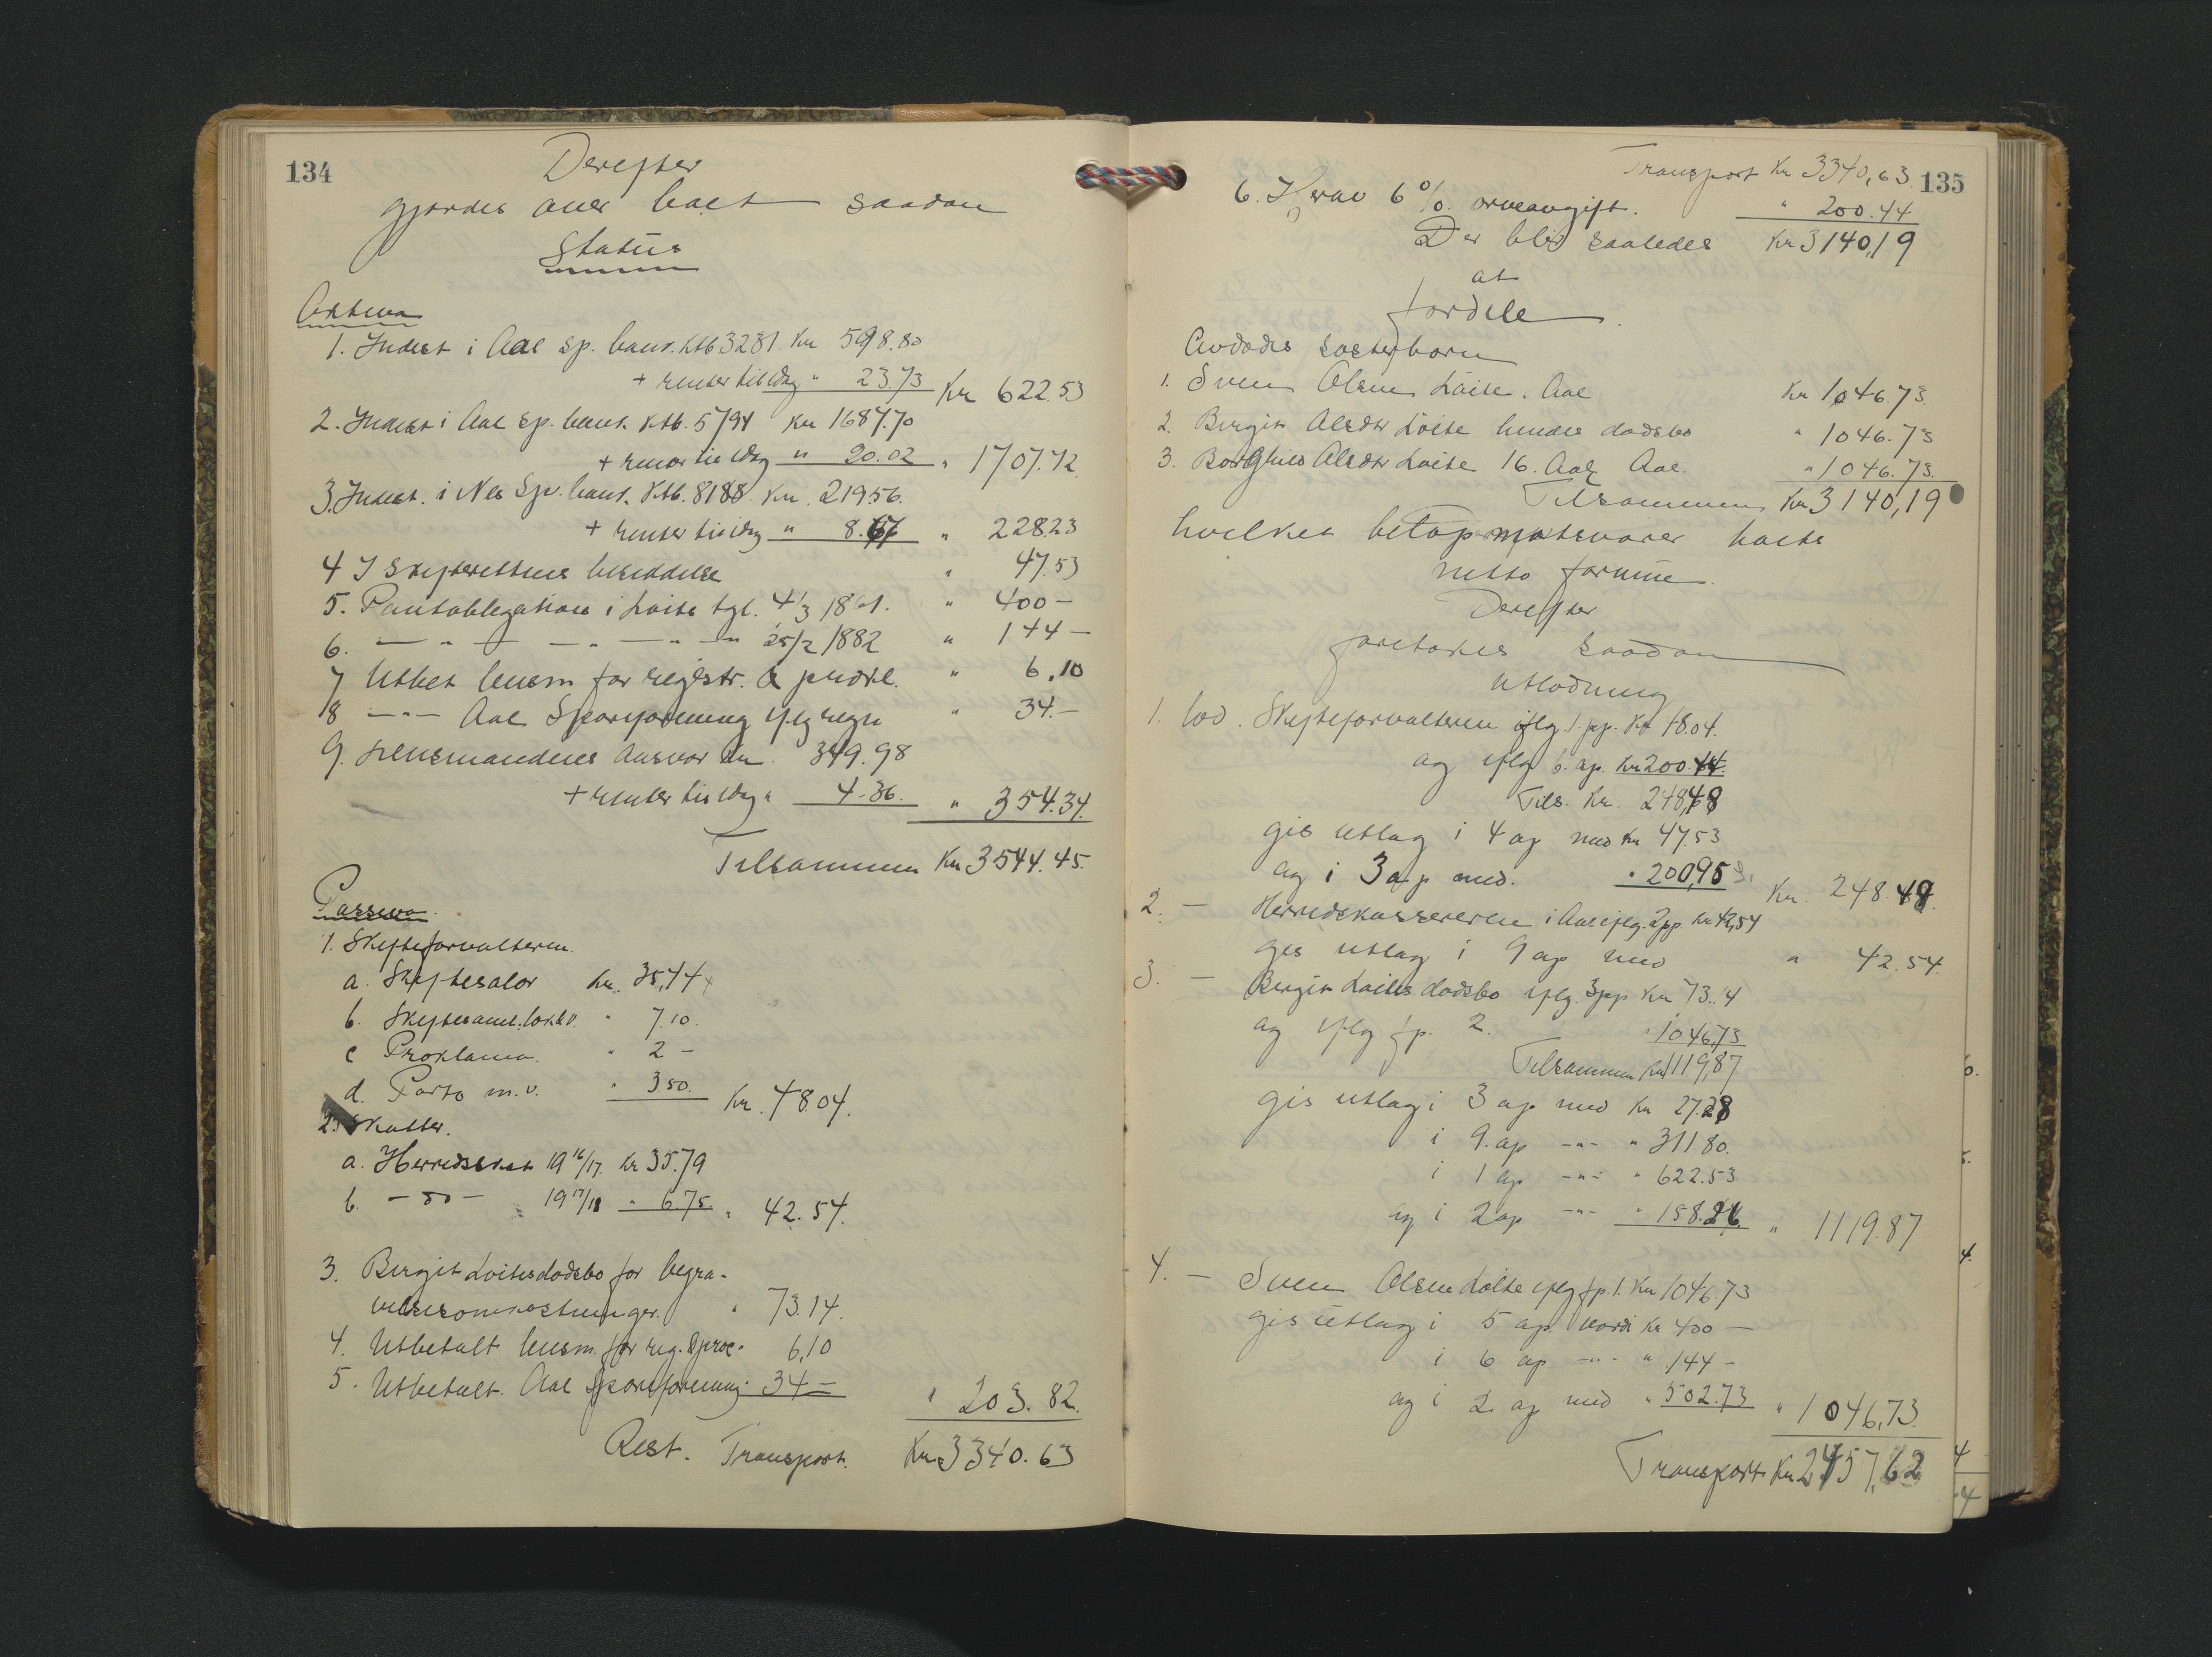 134
Derefter
gjordes over boet saadan
Status
Aktiva
1. Indest i Aal sp. bank. Ktb 3281. Kr 598.80
+ renter til idag " 23.73 Kr 622.53
2. Indest i Aal sp. bank. Ktb. 5794 Kr 1687.70
+ renter til idag " 20.02 " 1707.72
3. Indest. i Nes Sp. bank. Ktb. 8188 Kr. 219.56.
+ renter til idag " 8.67 " 228.23
4 I Skifterettens besiddelse " 47.53
5. Pantobligation i Loite tgl. 4/3 18 1. " 400 –
6. — " — — " — " — 25/2 1882 " 144 –
7 Utbet lensm for registr. & prokl. " 6.10
8 — " — Aal Sporforening iflg regn " 34.–
9. Lensmandens Ansvar Kr. 349.98
+ renter til idag " 4.36. " 354.34.
Tilsammen Kr 3544.45.
Passiva.
1. Skifteforvalteren.
a. Skiftesalær Kr. 35,44
b. Skiftesaml. lokkv. " 7.10.
c Proklama. " 2 –
d. Porto m.v. " 3.50. Kr. 48.04.
2. Skatter.
a. Herredsskat 19 16/17. Kr 35.79
b. – do – 19 17/18 " 6.75. " 42.54.
3. Birgit Loites dødsbo for begra-
velsesomkostninger. " 73.14.
4. Utbetalt lensm. for reg. & proc. " 6,10
5. Utbetalt. Aal Sporeforening 34 – " 203.82.
Rest. Transport. Kr. 3340.63
135
Transport Kr 3340,63.
6. Krav 6 % arveavgift. " 200.44
Der blir saaledes Kr 3140,19
at
fordele
Avdødes søsterbørn
1. Sven Olsen Loite. Aal Kr 1046.73.
2. Birgit Olsdtr Loite hendes dødsbo " 1046.73
3. Borghild Olsdtr Loite 16. Aal " 1046.73.
Tilsammen Kr 3140,19
hvilket beløp motsvarer boets
netto formue.
Derefter
foretokes saadan
Utlodning
1. lod. Skifteforvalteren iflg. 1. pp. Kr 48.04.
og iflg 6. ap. Kr 200.44.
Tils. Kr. 248,48
gis utlag i 4 ap med Kr 47.53
og i 3 ap med. " 200,95 Kr. 248.48.
2. – Herredskassereren i Aal iflg. 2 pp. Kr 42,54
gis utlag i 9 ap med " 42.54
3. – Birgit Loites dødsbo iflg. 3 pp Kr 73.14
og iflg fp. 2. " 1046,73
Tilsammen Kr 1119,87
gis utlag i 3 ap med Kr 27.28
i 9. ap – " – " 311.80.
i 1 ap – " – " 622.53
og i 2 ap – " – " 158.26 " 1119.87
4. – Sven Olsen Loite iflg fp. 1. Kr 1046.73
gis utlag i 5 ap. værdi Kr 400 —
i 6 ap – " – " 144 –
og i 2 ap med " 502.73 " 1046,73.
Transport Kr 2457,62